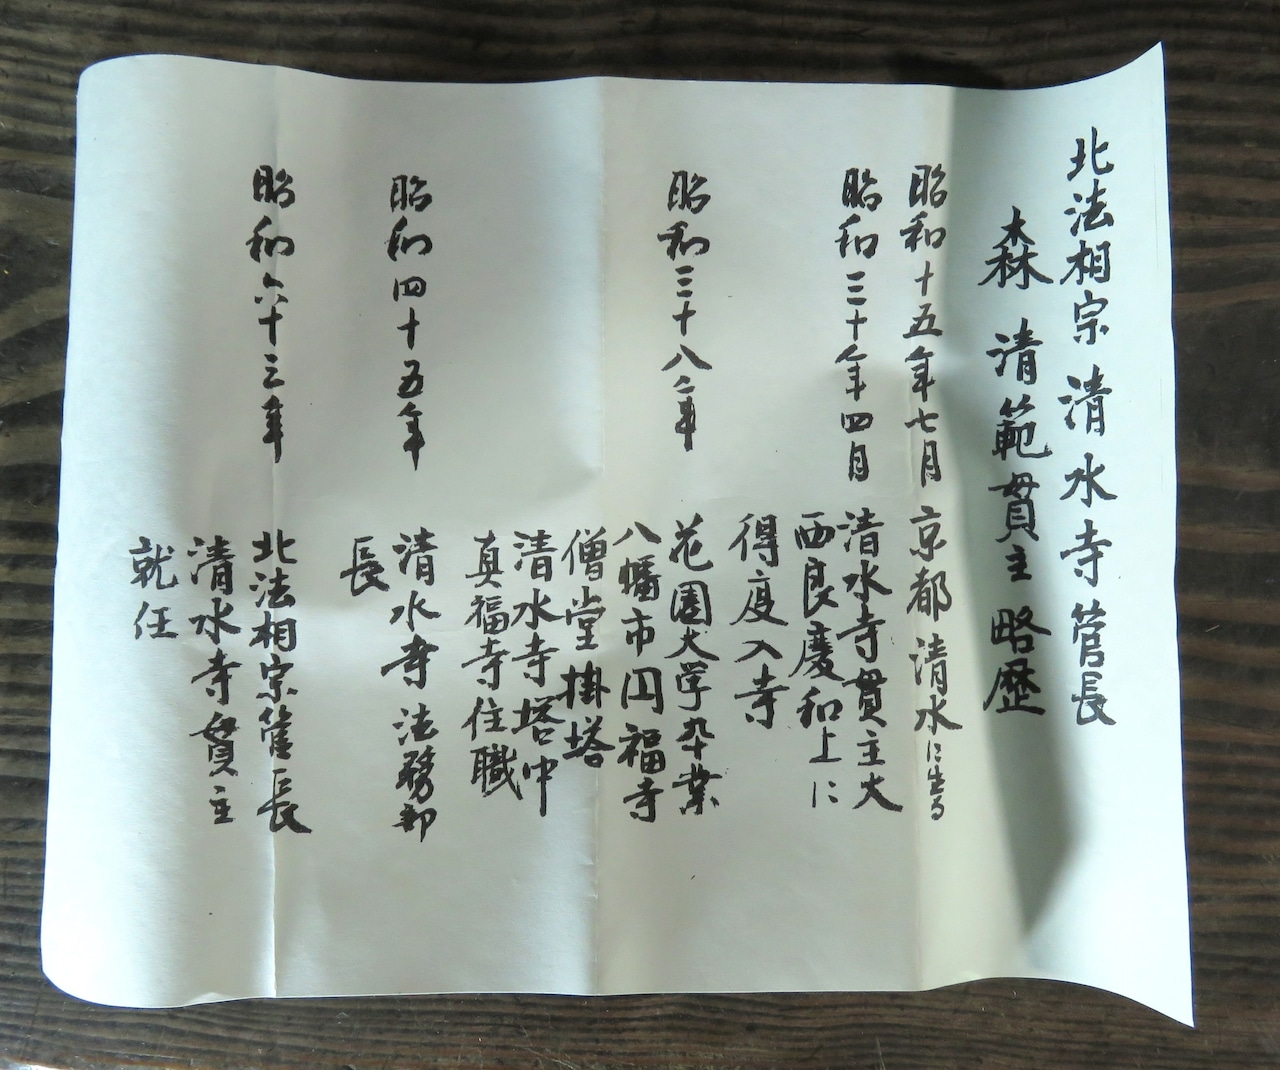 北法相宗 清水寺管長
森 清範貫主 略歴
昭和十五年七月 京都 清水に生る
昭和三十年四月 清水寺貫主大
西良慶和上に
得度入寺
昭和三十八年 花園大学卒業
八幡市円福寺
僧堂掛塔
清水寺塔中
真福寺住職
昭和四十五年 清水寺法務部
長
昭和六十三年 北法相宗管長
清水寺貫主
就任